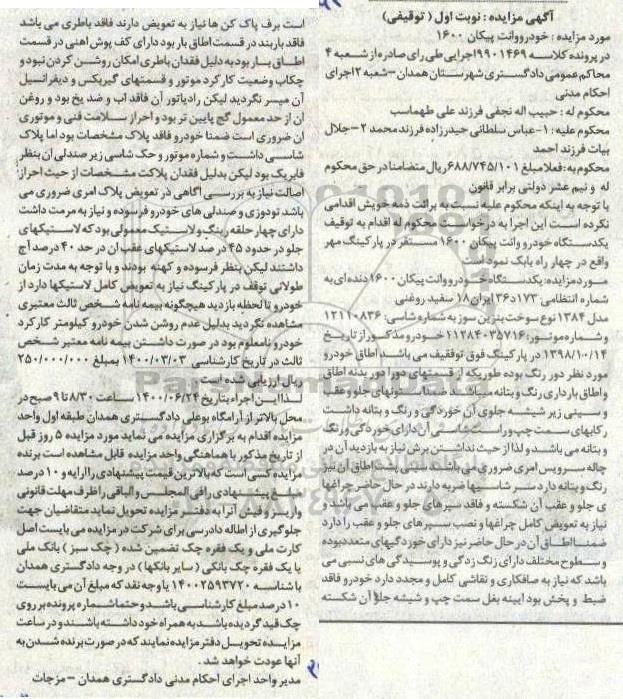 آگهی مزایده : نوبت اول ( توقیفی)
مورد مزایده : خودرو وانت پیکان ۱۶۰۰
در پرونده کلاسه ۹۹۰۱۴۶۹ اجرایی طی رای صادره از شعبه ۴
محاکم عمومی دادگستری شهرستان همدان – شعبه ۲ اجرای
احکام مدنی
محکوم له : حبیب اله نجفی فرزند علی طهماسب
محکوم علیه : ۱- عباس سلطانی حیدرزاده فرزند محمد ۲- جلال
بیات فرزند احمد
محکوم به : فعلا مبلغ ۶۸۸/۷۴۵/۱۰۱ ریال متضامنا در حق محکوم
له و نیم عشر دولتی برابر قانون
با توجه به اینکه محکوم علیه نسبت به برائت ذمه خویش اقدامی
نکرده است این اجرا به درخواست محکوم له اقدام به توقیف
یکدستگاه خودرو وانت پیکان ۱۶۰۰ مستقر در پارکینگ مهر
واقع در چهار راه بابک نموده است
مورد مزایده : یکدستگاه خودرو وانت پیکان ۱۶۰۰ دنده ای به
شماره انتظامی ۱۷۳ د ۳۶ ایران ۱۸ سفید روغنی
مدل ۱۳۸۴ نوع سوخت بنزین سوز به شماره شاسی : ۱۲۱۱۰۸۳۶
و شماره موتور : ۱۱۲۸۴۰۳۵۷۱۶ خودرو مذکور از تاریخ
۱۳۹۸/۱۰/۱۴ در پارکینگ فوق توقیف می باشد اطاق خودرو
مورد نظر دور رنگ بوده طوریکه از قسمتهای دورا دور بدنه اطاق
و اطاق بار داری رنگ و بتانه میباشد ضمنا ستونهای جلو و عقب
و سینی زیر شیشه جلوی آن خوردگی و رنگ و بتانه داشت
رکابهای سمت چپ و راست شاسی آن دارای خوردگی و رنگ
و بتانه می باشد و لذا از حیث نداشتن برش نیاز به بازدید آن در
چاله سرویس امری ضروری می باشد سینی پشت اطاق آن نیز
رنگ و بتانه دارد سر شاسیها ضربه دارند در حال حاضر چراغها
ی جلو و عقب آن شکسته و فاقد سپرهای جلو و عقب می باشد و
نیاز به تعویض کامل چراغها و نصب سپرهای جلو و عقب را دارد
ضمنا اطاق آن در حال حاضر نیز دارای خوردگیهای متعدد بوده
و سطوح مختلف دارای زنگ زدگی و پوسیدگی های نسبی می
باشد که نیاز به صافکاری و نقاشی کامل و مجدد دارد خودرو فاقد
ضبط و پخش بود ایینه بغل سمت چپ و شیشه جلو آن شکسته
است برف پاک کن ها نیاز به تعویض دارند فاقد باطری می باشد
فاقد باربند در قسمت اطاق بار بود دارای کف پوش اهنی در قسمت
اطاق بار بود به دلیل فقدان باطری امکان روشن کردن نبود و
چکاپ وضعیت کارکرد موتور و قسمتهای گیربکس و دیفرانسیل
آن میسر نگردید لیکن رادیاتور آن فاقد اب و ضد یخ بود و روغن
ان از حد معمول گچ پایین تر بود و احراز سلامت فنی و موتوری
ان ضروری است ضمنا خودرو فاقد پلاک مشخصات بود اما پلاک
شاسی داشت و شماره موتور و حک شاسی زیر صندلی آن بنظر
فابریک بود لیکن بدلیل فقدان پلاکت مشخصات از حیث احراز
اصالت نیاز به بررسی اگاهی در تعویض پلاک امری ضروری می
باشد تودوزی و صندلی های خودرو فرسوده و نیاز به مرمت داشت
دارای چهار حلقه رینگ و لاستیک معمولی بود که لاستیکهای
جلو در حدود ۴۵ در صد لاستیکهای عقب ان در حد ۴۰ درصد آج
داشتند لیکن بنظر فرسوده و کهنه بودند و با توجه به مدت زمان
طولانی توقف در پارکینگ نیاز به تعویض کامل لاستیکها دارد از
خودرو تا لحظه بازدید هیچگونه بیمه نامه شخص ثالث معتبری
مشاهده نگردید بدلیل عدم روشن شدن خودرو کیلومتر کارکرد
خودرو نامعلوم بود در صورت داشتن بیمه نامه معتبر شخص
ثالث در تاریخ کارشناسی ۱۴۰۰/۰۳/۰۳ بمبلغ ۲۵۰/۰۰۰/۰۰۰
ریال ارزیابی شده است
لذا این اجراء بتاریخ ۱۴۰۰/۰۶/۲۴ ساعت ۸/۳۰ تا ۹ صبح در
محل بالاتر از آرامگاه بوعلی دادگستری همدان طبقه اول واحد
مزایده اقدام به برگزاری مزایده می نماید مورد مزایده ۵ روز قبل
از تاریخ مذکور با هماهنگی واحد مزایده قابل مشاهده است برنده
مزایده کسی است که بالاترین قیمت پیشنهادی را ارایه و ۱۰ درصد
پیشنهادی را فی المجلس و الباقی را ظرف مهلت قانونی
واریز و فیش آنرا به دفتر مزایده تحویل نماید متقاضیان جهت
جلوگیری از اطاله دادرسی برای شرکت در مزایده می بایست اصل
کارت ملی و یک فقره چک تضمین شده ( چک سبز ) بانک ملی
یا یک فقره چک بانکی ( سایر بانکها ) در وجه دادگستری همدان
با شناسه ۱۴۰۰۲۵۹۳۷۲۰ یا وجه نقد که مبلغ آن می بایست
۱۰ درصد مبلغ کارشناسی باشد و حتما شماره پرونده بر روی
چک قید گردیده باشد به همراه خود داشته باشند و در ساعت
مزایده تحویل دفتر مزایده نمایند که در صورت برنده نشدن به
آنها عودت خواهد شد .
مدیر واحد اجرای احکام مدنی دادگستری همدان – مزجات